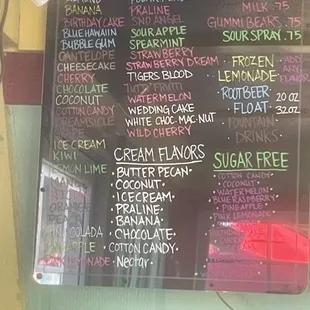 BANANA
BIRTHDAY CAKE
BLUE HAWAIIN
BUBBLE GUM
CANTELOPE
CHEESECAKE
CHERRY
CHOCOLATE
COCONUT
COTTON CANDY
CREAMSICLE
GRAPE
ICE CREAM
KIWI
LEMON LIME
PRALINE
SND ANGEL
SOUR APPLE
SPEARMINT
STRAWBERRY
STRAWBERRY DREAM
TIGERS BLOOD
TUTTI FRUTTI
WATERMELON
WEDDING CAKE
WHITE CHOC MAC NUT
WILD CHERRY
MILK .75
GUMMI BEARS .75
SOUR SPRAY .75
FROZEN
LEMONADE
ADD
ANY
FLAVOR
ROOTBEER
FLOAT
20 OZ
32 OZ
FOUNTAIN
DRINKS
CREAM FLAVORS
BUTTER PECAN
COCONUT
ICECREAM
PRALINE
BANANA
CHOCOLATE
COTTON CANDY
Nectar
SUGAR FREE
COTTON CANDY
COCONUT
WATERMELON
BLUE RASPBERRY
PINEAPPLE
PINK LEMONADE